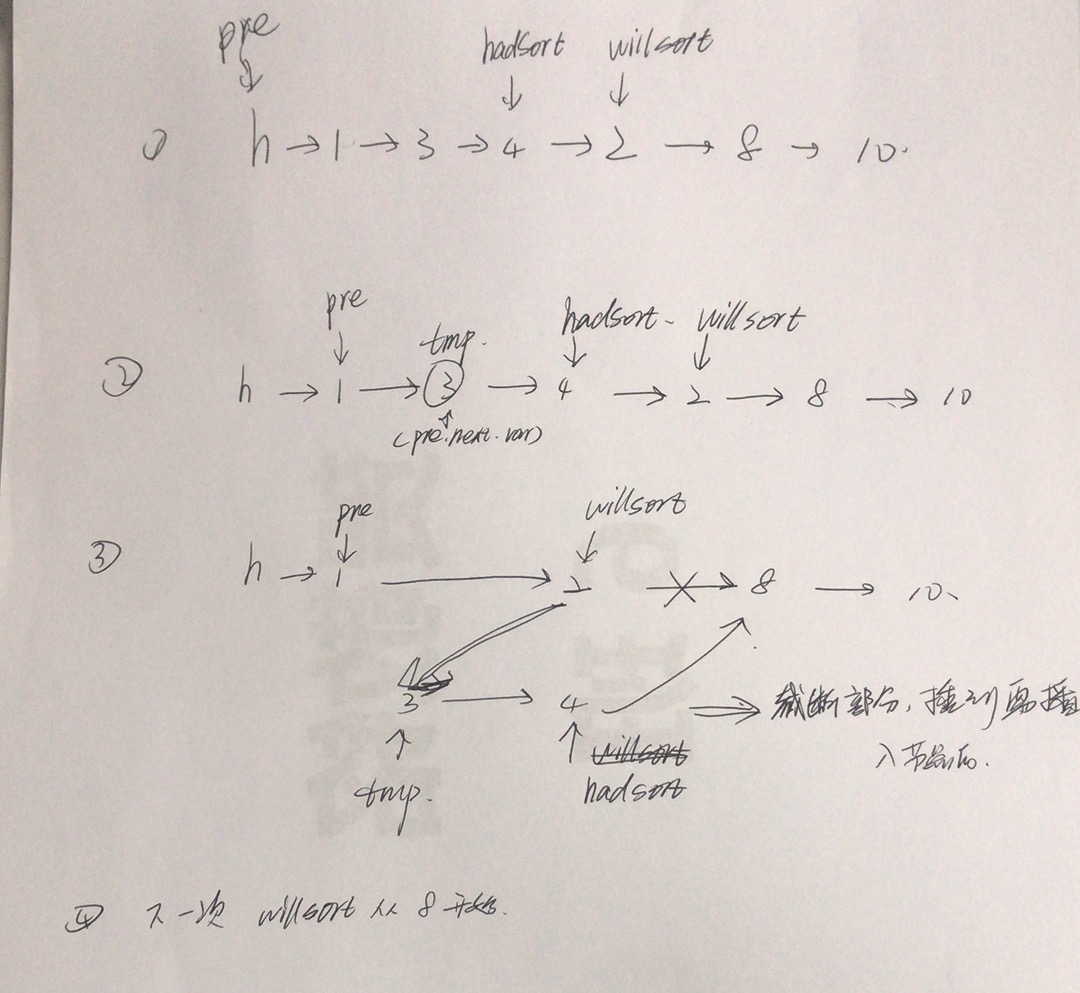 pre hadsort willsort
① h → 1 → 3 → 4 → 2 → 8 → 10.
pre tmp. hadsort willsort
② h → 1 → 3 → 4 → 2 → 8 → 10
(pre.next.var)
pre willsort
③ h → 1 → 2 → 8 → 10、
3 → 4 ⇒ 截断部分，插到要插
入节点后.
tmp. willsort
hadsort
④ 下一次 willsort 从 8 开始.